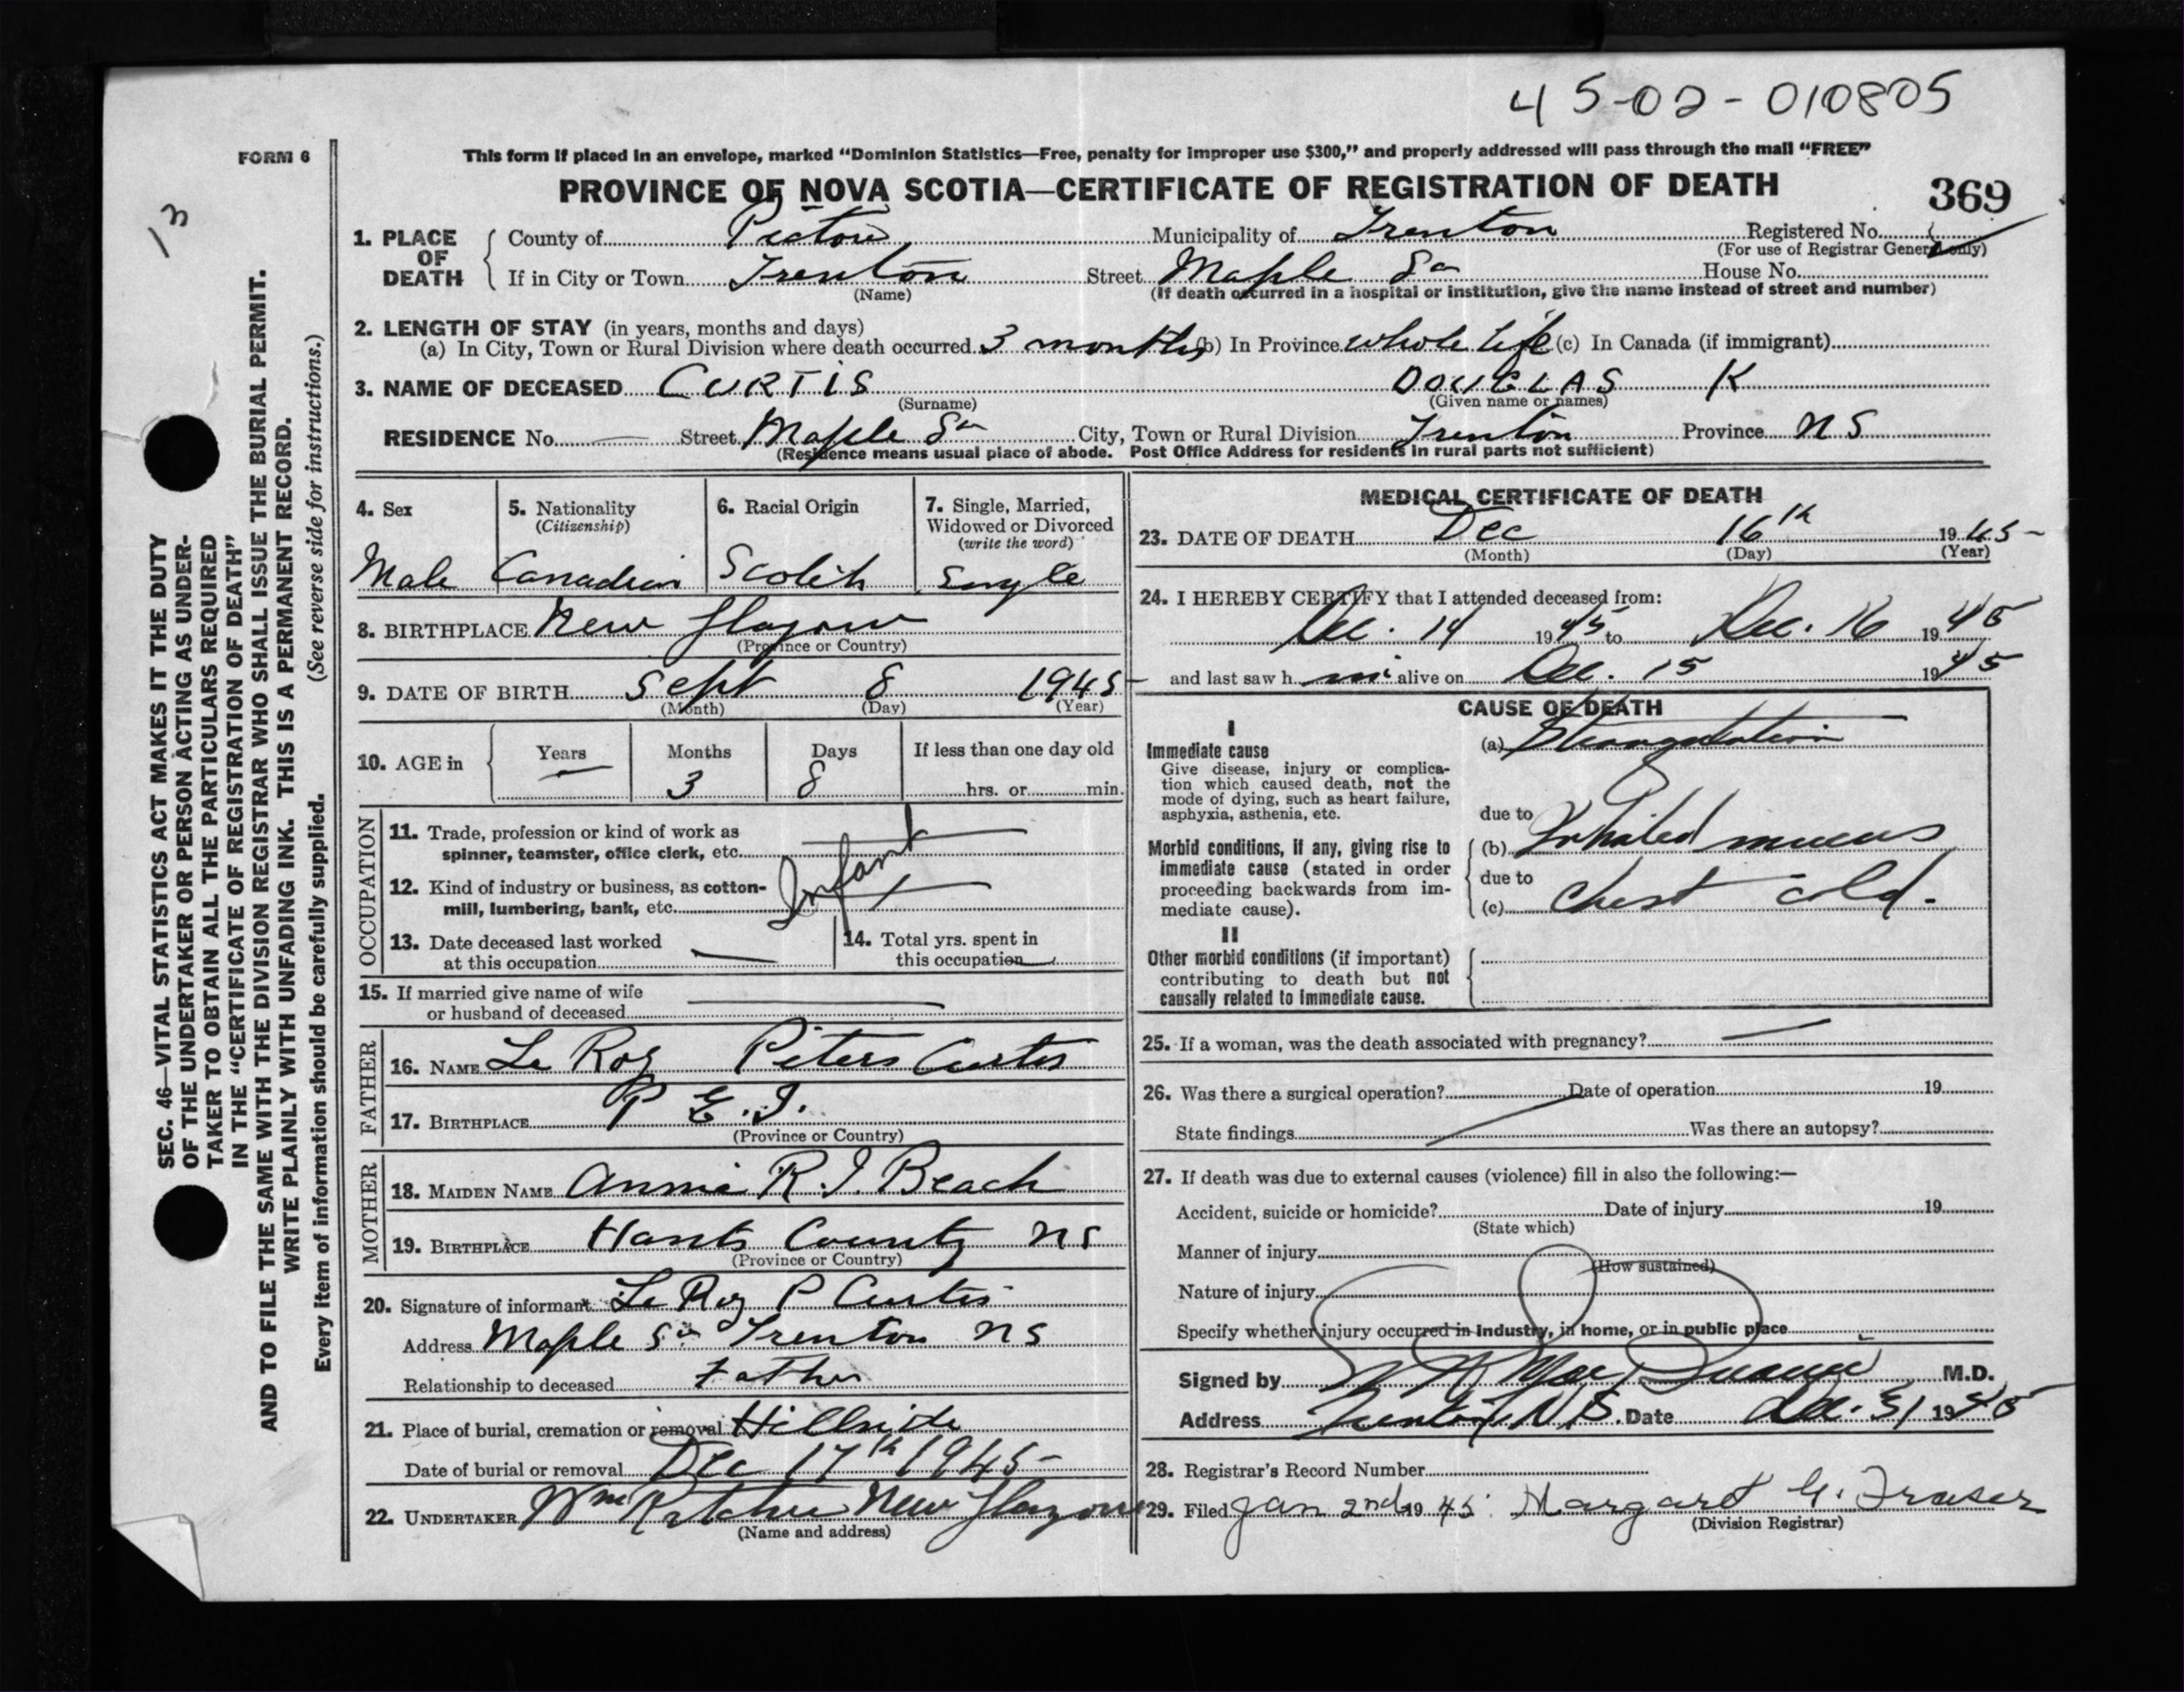 45-02-010805
FORM 6
This form if placed in an envelope, marked “Dominion Statistics—Free, penalty for improper use $300,” and properly addressed will pass through the mail “FREE”
PROVINCE OF NOVA SCOTIA—CERTIFICATE OF REGISTRATION OF DEATH
369
13
1. PLACE OF DEATH
County of Pictou Municipality of Trenton Registered No.
(For use of Registrar General only)
If in City or Town Trenton Street Maple St House No.
(Name) (If death occurred in a hospital or institution, give the name instead of street and number)
2. LENGTH OF STAY (in years, months and days)
(a) In City, Town or Rural Division where death occurred 3 months (b) In Province whole life (c) In Canada (if immigrant)
3. NAME OF DECEASED CURTIS DOUGLAS K
(Surname) (Given name or names)
RESIDENCE No. — Street Maple St City, Town or Rural Division Trenton Province NS
(Residence means usual place of abode. Post Office Address for residents in rural parts not sufficient)
SEC. 46—VITAL STATISTICS ACT MAKES IT THE DUTY
OF THE UNDERTAKER OR PERSON ACTING AS UNDER-
TAKER TO OBTAIN ALL THE PARTICULARS REQUIRED
IN THE “CERTIFICATE OF REGISTRATION OF DEATH”
AND TO FILE THE SAME WITH THE DIVISION REGISTRAR WHO SHALL ISSUE THE BURIAL PERMIT.
WRITE PLAINLY WITH UNFADING INK. THIS IS A PERMANENT RECORD.
Every item of information should be carefully supplied. (See reverse side for instructions.)
4. Sex
Male
5. Nationality
(Citizenship)
Canadian
6. Racial Origin
Scotch
7. Single, Married,
Widowed or Divorced
(write the word)
Single
8. BIRTHPLACE New Glasgow
(Province or Country)
9. DATE OF BIRTH Sept 8 1945
(Month) (Day) (Year)
10. AGE in
Years Months Days If less than one day old
— 3 8 hrs. or min.
OCCUPATION
11. Trade, profession or kind of work as
spinner, teamster, office clerk, etc.
Infant
12. Kind of industry or business, as cotton-
mill, lumbering, bank, etc.
13. Date deceased last worked
at this occupation —
14. Total yrs. spent in
this occupation —
15. If married give name of wife
or husband of deceased —
FATHER
16. NAME Le Roy Peters Curtis
17. BIRTHPLACE P E. I.
(Province or Country)
MOTHER
18. MAIDEN NAME Annie R. I. Beach
19. BIRTHPLACE Hants County NS
(Province or Country)
20. Signature of informant Le Roy P Curtis
Address Maple St Trenton NS
Relationship to deceased Father
21. Place of burial, cremation or removal Hillside
Date of burial or removal Dec 17th 1945
22. UNDERTAKER Wm Ritchie New Glasgow
(Name and address)
MEDICAL CERTIFICATE OF DEATH
23. DATE OF DEATH Dec 16th 1945
(Month) (Day) (Year)
24. I HEREBY CERTIFY that I attended deceased from:
Dec. 14 1945 to Dec. 16 1945
and last saw h im alive on Dec. 15 1945
CAUSE OF DEATH
I
Immediate cause
Give disease, injury or complica-
tion which caused death, not the
mode of dying, such as heart failure,
asphyxia, asthenia, etc.
(a) Strangulation
due to
Morbid conditions, if any, giving rise to
immediate cause (stated in order
proceeding backwards from im-
mediate cause).
(b) Inhaled mucus
due to
(c) Chest cold.
II
Other morbid conditions (if important)
contributing to death but not
causally related to immediate cause.
25. If a woman, was the death associated with pregnancy? —
26. Was there a surgical operation? Date of operation 19
State findings Was there an autopsy?
27. If death was due to external causes (violence) fill in also the following:—
Accident, suicide or homicide? Date of injury 19
(State which)
Manner of injury
(How sustained)
Nature of injury
Specify whether injury occurred in industry, in home, or in public place
Signed by M.D.
Address Trenton, N.S. Date Dec. 31 1945
28. Registrar's Record Number
29. Filed Jan 2nd 1945. Margaret G. Fraser
(Division Registrar)